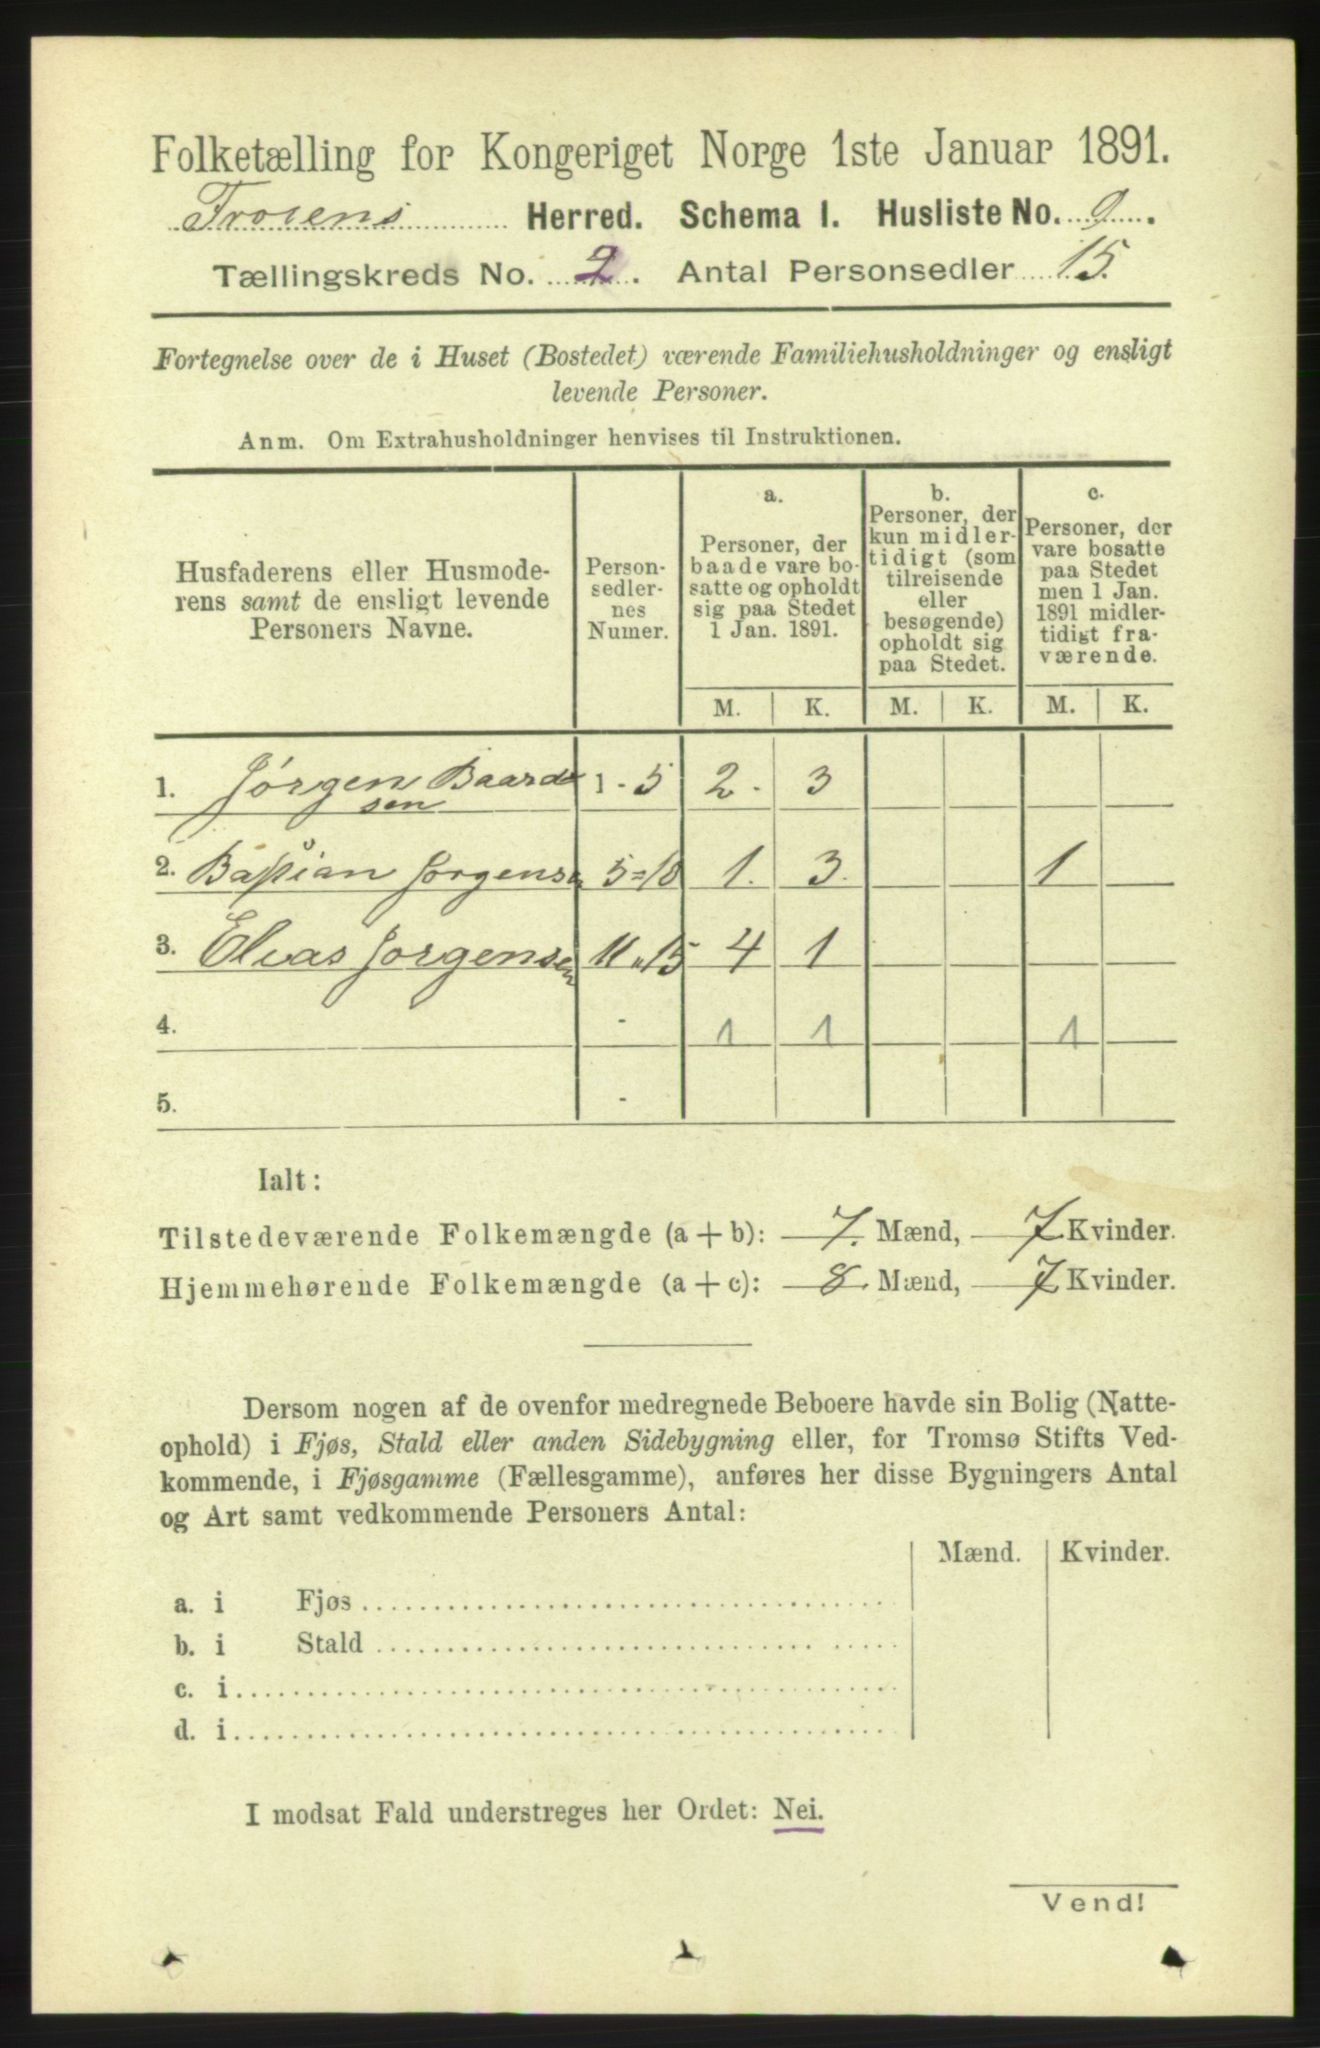 Folketælling for Kongeriget Norge 1ste Januar 1891.
Frosens Herred. Schema I. Husliste No. 9.
Tællingskreds No. 2. Antal Personsedler 15.
Fortegnelse over de i Huset (Bostedet) værende Familiehusholdninger og ensligt
levende Personer.
Anm. Om Extrahusholdninger henvises til Instruktionen.
Husfaderens eller Husmode-
rens samt de ensligt levende
Personers Navne.
Person-
sedler-
nes
Numer.
a.
Personer, der
baade vare bo-
satte og opholdt
sig paa Stedet
1 Jan. 1891.
b.
Personer, der
kun midler-
tidigt (som
tilreisende
eller
besøgende)
opholdt sig
paa Stedet.
c.
Personer, der
vare bosatte
paa Stedet
men 1 Jan.
1891 midler-
tidigt fra-
værende.
M. K. M. K. M. K.
1. Jørgen Baard 1 - 5 2. 3
sen
2. Bastian Jørgensen 5=10 1. 3. 1
3. Elias Jørgensen 11 " 15 4 1
4. - 1 1 1
5. -
Ialt:
Tilstedeværende Folkemængde (a + b): 7. Mænd, 7 Kvinder.
Hjemmehørende Folkemængde (a + c): 8. Mænd, 7 Kvinder.
Dersom nogen af de ovenfor medregnede Beboere havde sin Bolig (Natte-
ophold) i Fjøs, Stald eller anden Sidebygning eller, for Tromsø Stifts Ved-
kommende, i Fjøsgamme (Fællesgamme), anføres her disse Bygningers Antal
og Art samt vedkommende Personers Antal:
Mænd. Kvinder.
a. i Fjøs
b. i Stald
c. i
d. i
I modsat Fald understreges her Ordet: Nei.
Vend!